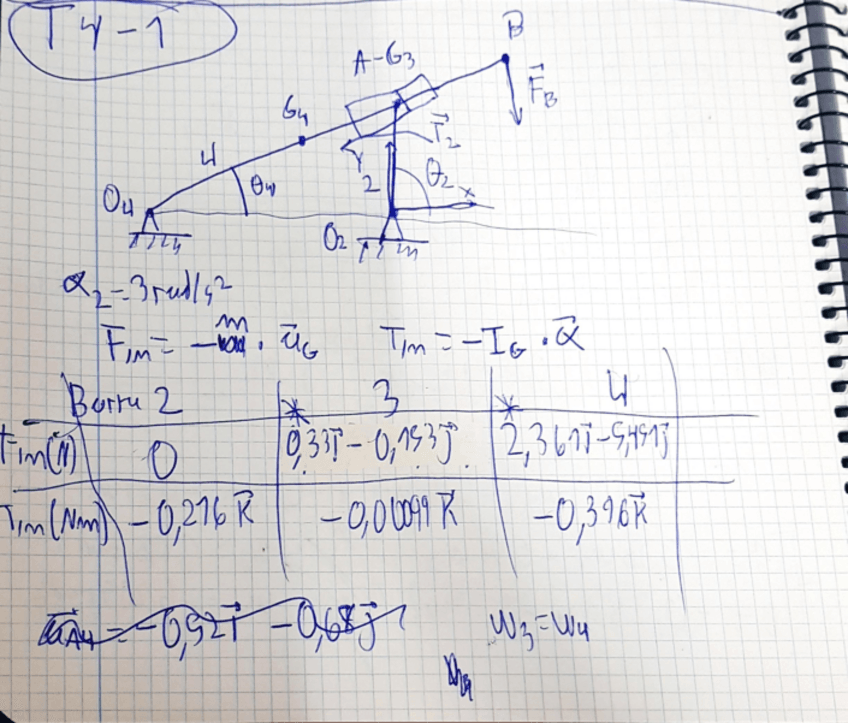 T4-1
B
A-G3
F⃗B
G4
T⃗2
4
Y
2
θ2
x
θ4
O4
O2
α2=3rad/s²
Fim= -m · āG Tim= -IG · α⃗
Barra 2 3 4
Fim(N) 0 0,33i⃗ - 0,153j⃗ 2,361i⃗-5,451j⃗
Tim(Nm) -0,216 k⃗ -0,00099 k⃗ -0,396k⃗
a⃗A4 = -0,52i⃗ -0,68j⃗ W3=W4